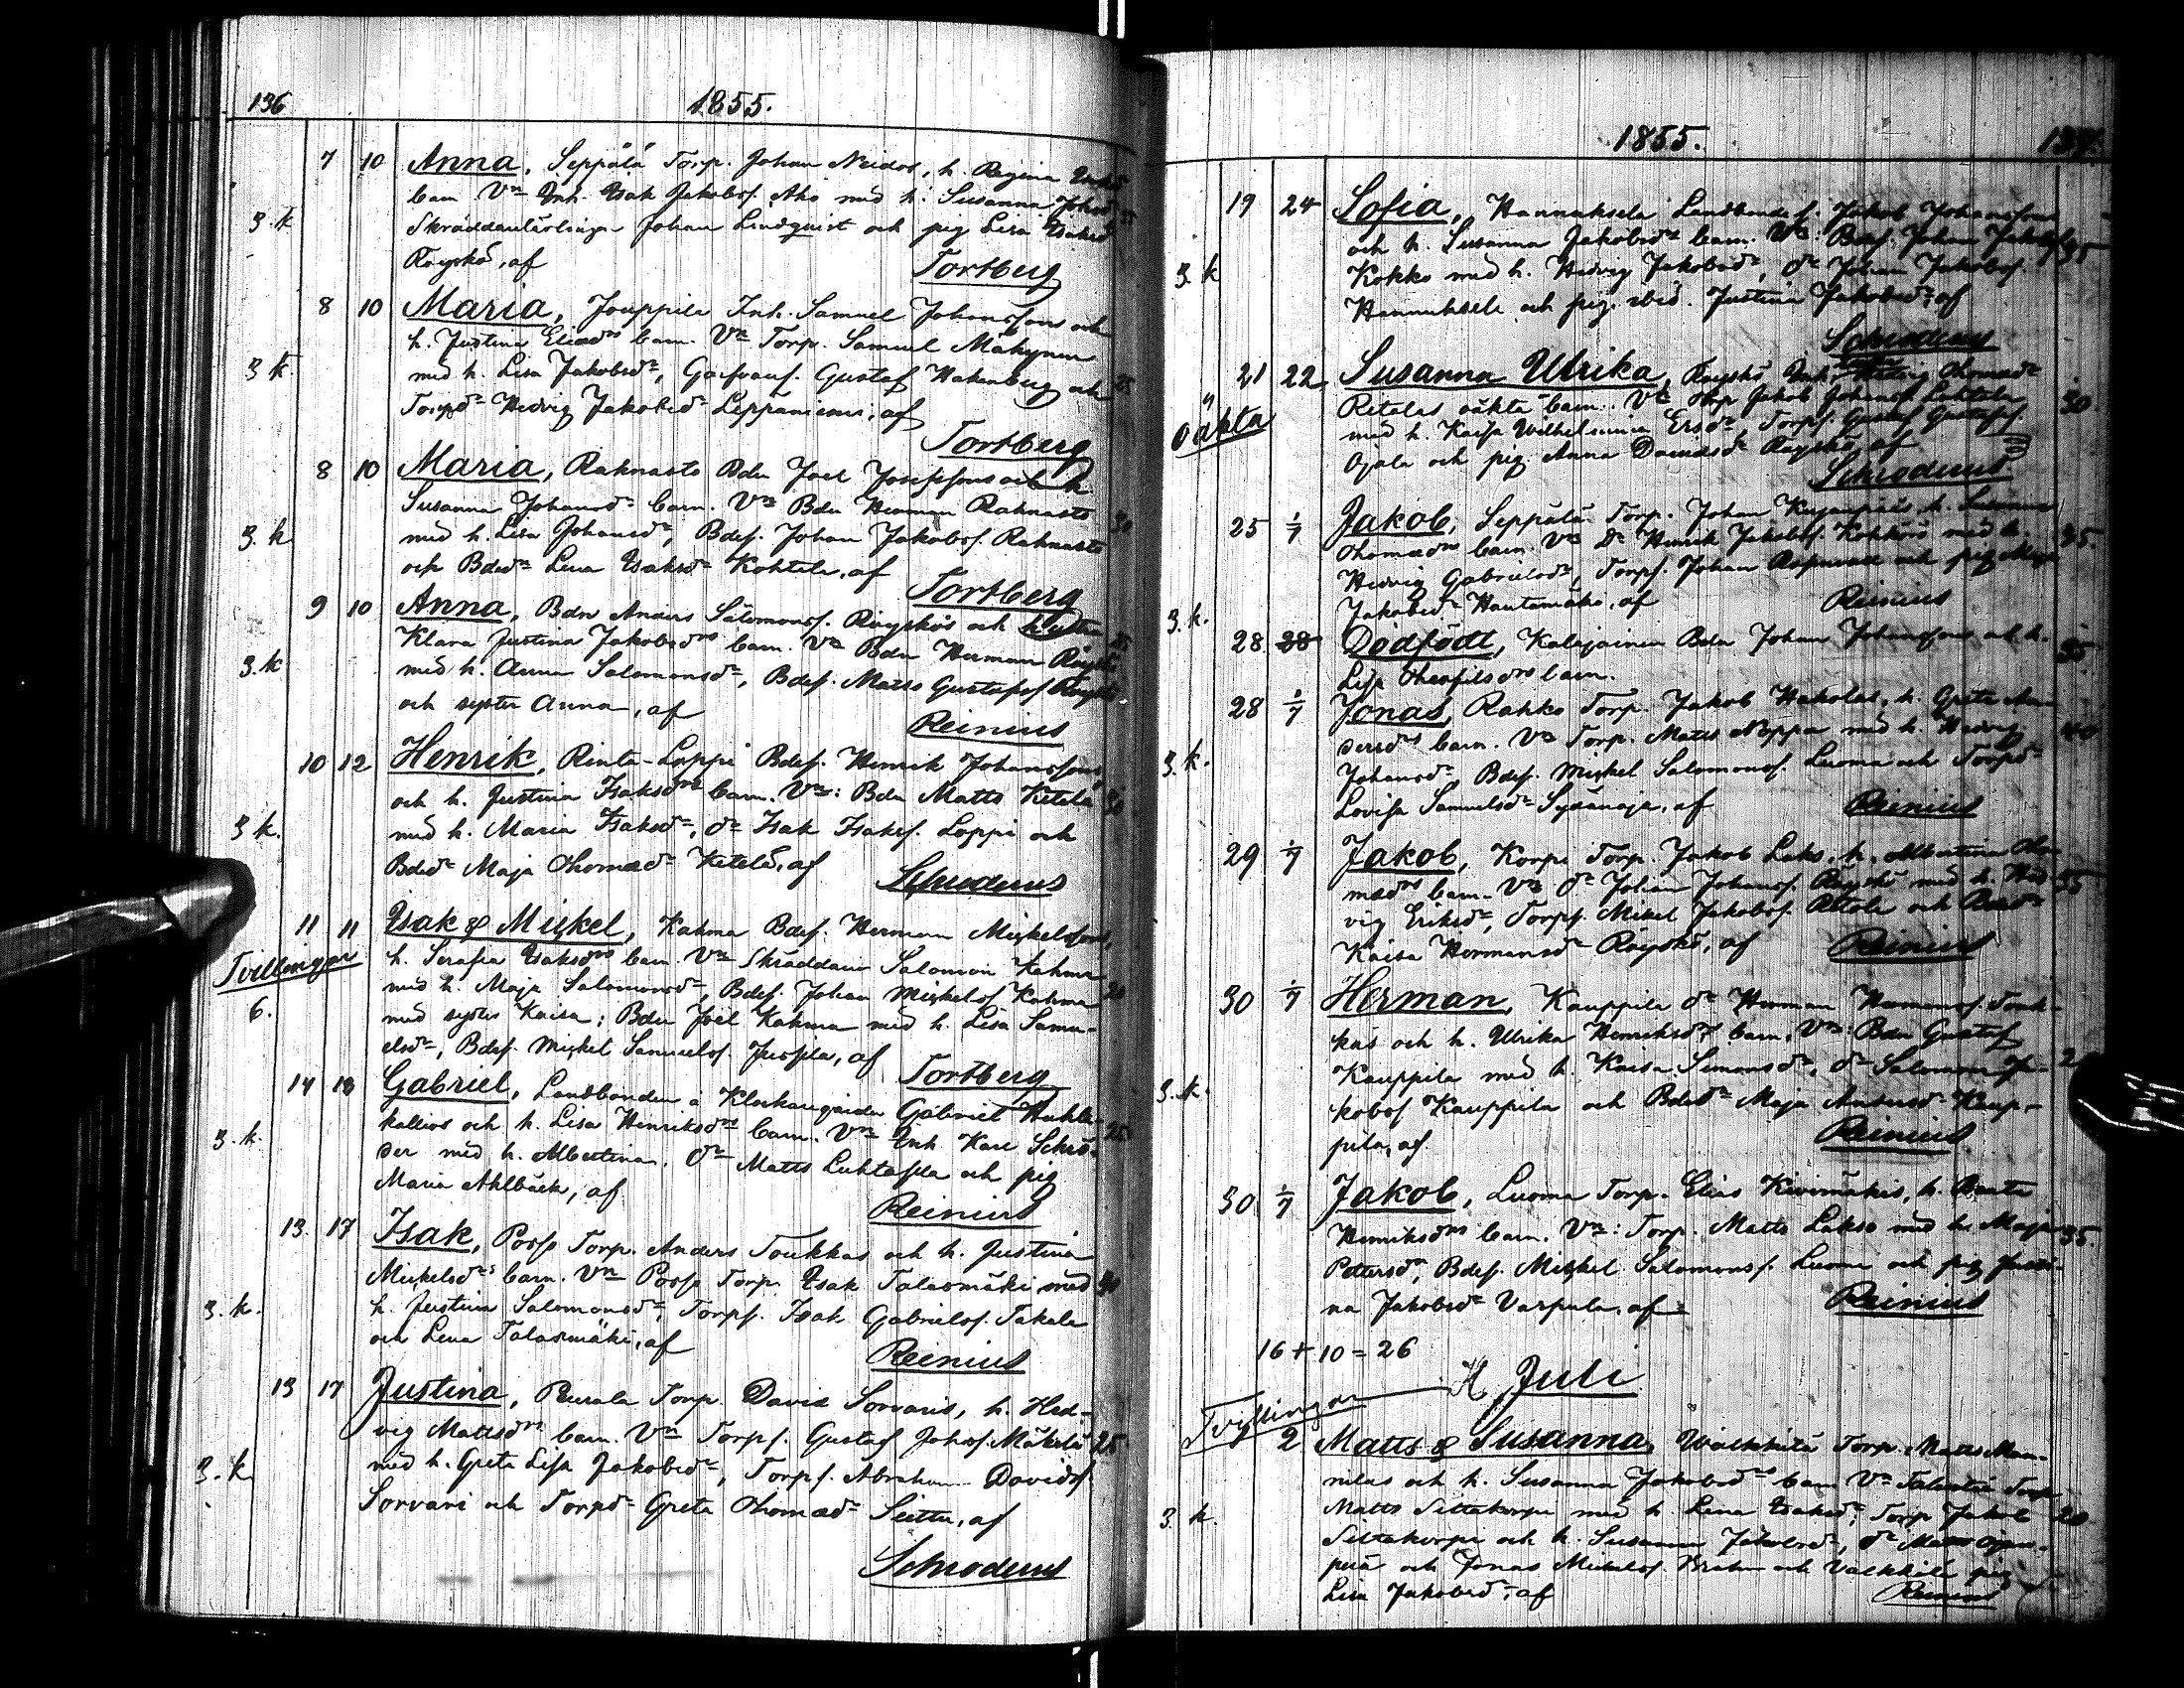 136
1855.
7 10 Anna, Seppälä Torp. Johan Neidos, h. Regina
barn. Vn Inh. Isak Jakobss. Aho med h. Susanna Johsd
3. k Skräddarlärlingen Johan Lindqvist och pig Lisa Isaksd
Röyskö, af Tortberg
8 10 Maria, Jouppila Inh. Samuel Johanssons och
h. Justina Eliædrs barn. Vn Torp. Samuel Mäkynen
3 k med h. Lisa Jakobsdr, Gustaf Hakenberg och 25
Torpdr Hedvig Jakobsdr Leppäniemi, af
Tortberg
8 10 Maria, Rahnasto Bdn Joel Josefssons och h.
Susanna Johansdr barn. Vn Bdn Herman Rahnasto 30
3. k med h. Lisa Johansdr, Bdes. Johan Jakobss. Rahnasto
och Bdedr Lena Isaksdr Kohtala, af
Tortberg
9 10 Anna, Bdn Anders Salomonss. Röyskös och hustru
Klara Justina Jakobsdrs barn. Vn Bdn Herman Röyskö
3. k med h. Anna Salomonsdr, Bdes. Matts Gustafss. Röyskö
och syster Anna, af Reinius
10 12 Henrik, Rinta-Loppi Bdes. Henrik Johanssons
och h. Justina Isaksdrs barn. Vn: Bdn Matts Ketelä 30
3 k. med h. Maria Isaksdr, dr Isak Isakss. Loppi och
Bdedr Maja Thomædr Ketelä, af
Schroderus
11 11 Isak & Mickel, Kahma Bdes. Herman Mickelssons,
Tvillingar h. Serafia Isaksdrs barn Vn Skräddarn Salomon Kahma
6. med h. Maja Salomonsdr, Bdes. Johan Mickelss. Kahma 20
med syster Kaisa; Bdn Joel Kahma med h. Lisa Samu-
elsdr, Bdes. Mickel Samuelss. Jussila, af
Tortberg
14 13 Gabriel, Landbonden å Klockaregården Gabriel
kallios och h. Lisa Henriksdrs barn. Vn Inh. Karl Schrö- 25
3. k. der med h. Albertina. dr Matts Luhtasela och pig
Maria Ahlbäck, af
Reinius
13. 17 Isak, Porss Torp. Anders Toukkas och h. Justina
Mickelsdrs barn. Vn Porss Torp. Isak Talasmäki med
3. k. h. Justina Salomonsdr, Torps. Isak Gabrielss. Takala
och Lena Talasmäki, af
Reinius
13 17 Justina, Peurala Torp. David Sorvaris, h. Hed-
vig Mattsdrs barn. Vn Torps. Gustaf Johss. Mäkelä 25
3. k med h. Greta Lisa Jakobsdr, Torps. Abraham Davidss.
Sorvari och Torpdr Greta Thomædr Seittu, af
Schroderus
1855.
137.
19 24 Sofia, Hannuksela Landbonde s. Jakob Johanssons
och h. Susanna Jakobsdrs barn. Vn: Bdes. Johan Jakobss. 35
3. k Kokko med h. Hedvig Jakobsdr, dr Johan Jakobss.
Hannuksela och pig. ibid. Justina Jakobsdr, af
Schroderus
21 22 Susanna Ulrika, Röyskö Inh. Thomædr
oäkta Ritalas oäkta barn. Vn Torp Jakob Johanss. Luhtala 30
med h. Kaisa Wilhelmina Ersdr Torps. Gustaf Gustafss.
Ojala och pig. Anna Davidsdr Röyskö, af
Schroderus
25 1/7 Jakob, Seppälä Torp. Johan Kujanpääs, h. Susanna
Thomædrs barn. Vn dr Henrik Jakobss. Kohkörö med h. 35.
Hedvig Gabrielsdr, Torps. Johan och pig Maja
3. k. Jakobsdr Hautamäki, af Reinius
28. 28 Dödfödt, Kalajainen Bdn Johan Johanssons och h. 35
Lisa Theofilsdrs barn.
28 1/7 Jonas, Rahko Torp. Jakob Hakolas, h. Greta An-
dersdrs barn. Vn Torp. Matts Noppa med h. Hedvig 40
3. k. Johansdr, Bdes. Mickel Salomonss. Luoma och Torpdr
Lovisa Samuelsdr Sydänoja, af Reinius
29 1/7 Jakob, Korpi Torp. Jakob Laks, h. Albertina Tho-
mædrs barn. Vn dr Johan Johanss. Röyskö med h. Hed- 35
vig Eriksdr, Torps. Mikel Jakobss. Ritola och Bdedr
Kaisa Hermansdr Röyskö, af Reinius
30 1/7 Herman, Kauppila dr Herman Hermanss. Touk-
kas och h. Ulrika Henriksdrs barn. Vn: Bdn Gustaf
3. k. Kauppila med h. Kaisa Simonsdr, dr Salomon Ja- 2
kobss. Kauppila och Bdedr Maja Andersdr Kaup-
pila, af Reinius
30 1/7 Jakob, Luoma Torp. Elias Kivimäkis, h. Beata
Henriksdrs barn. Vn: Torp. Matts Lakso med h. Maja 35.
Pettersdr, Bdes. Mickel Salomonss. Luoma och pig Justi-
na Jakobsdr Varpula, af Reinius
16 + 10 = 26
Juli
Tvillingar
2 Matts & Susanna, Wälkkilä Torp. Matts Man-
nilas och h. Susanna Jakobsdrs barn Vn Torp
3. k. Matts Siltakorpi med h. Lena Isaksdr; Torp Jakob 20
Siltakorpi och h. Susanna Jakobsdr, dr Matts Ojan-
perä och Jonas Mickelss. och Välkkilä pig
Lisa Jakobsdr, af Reinius